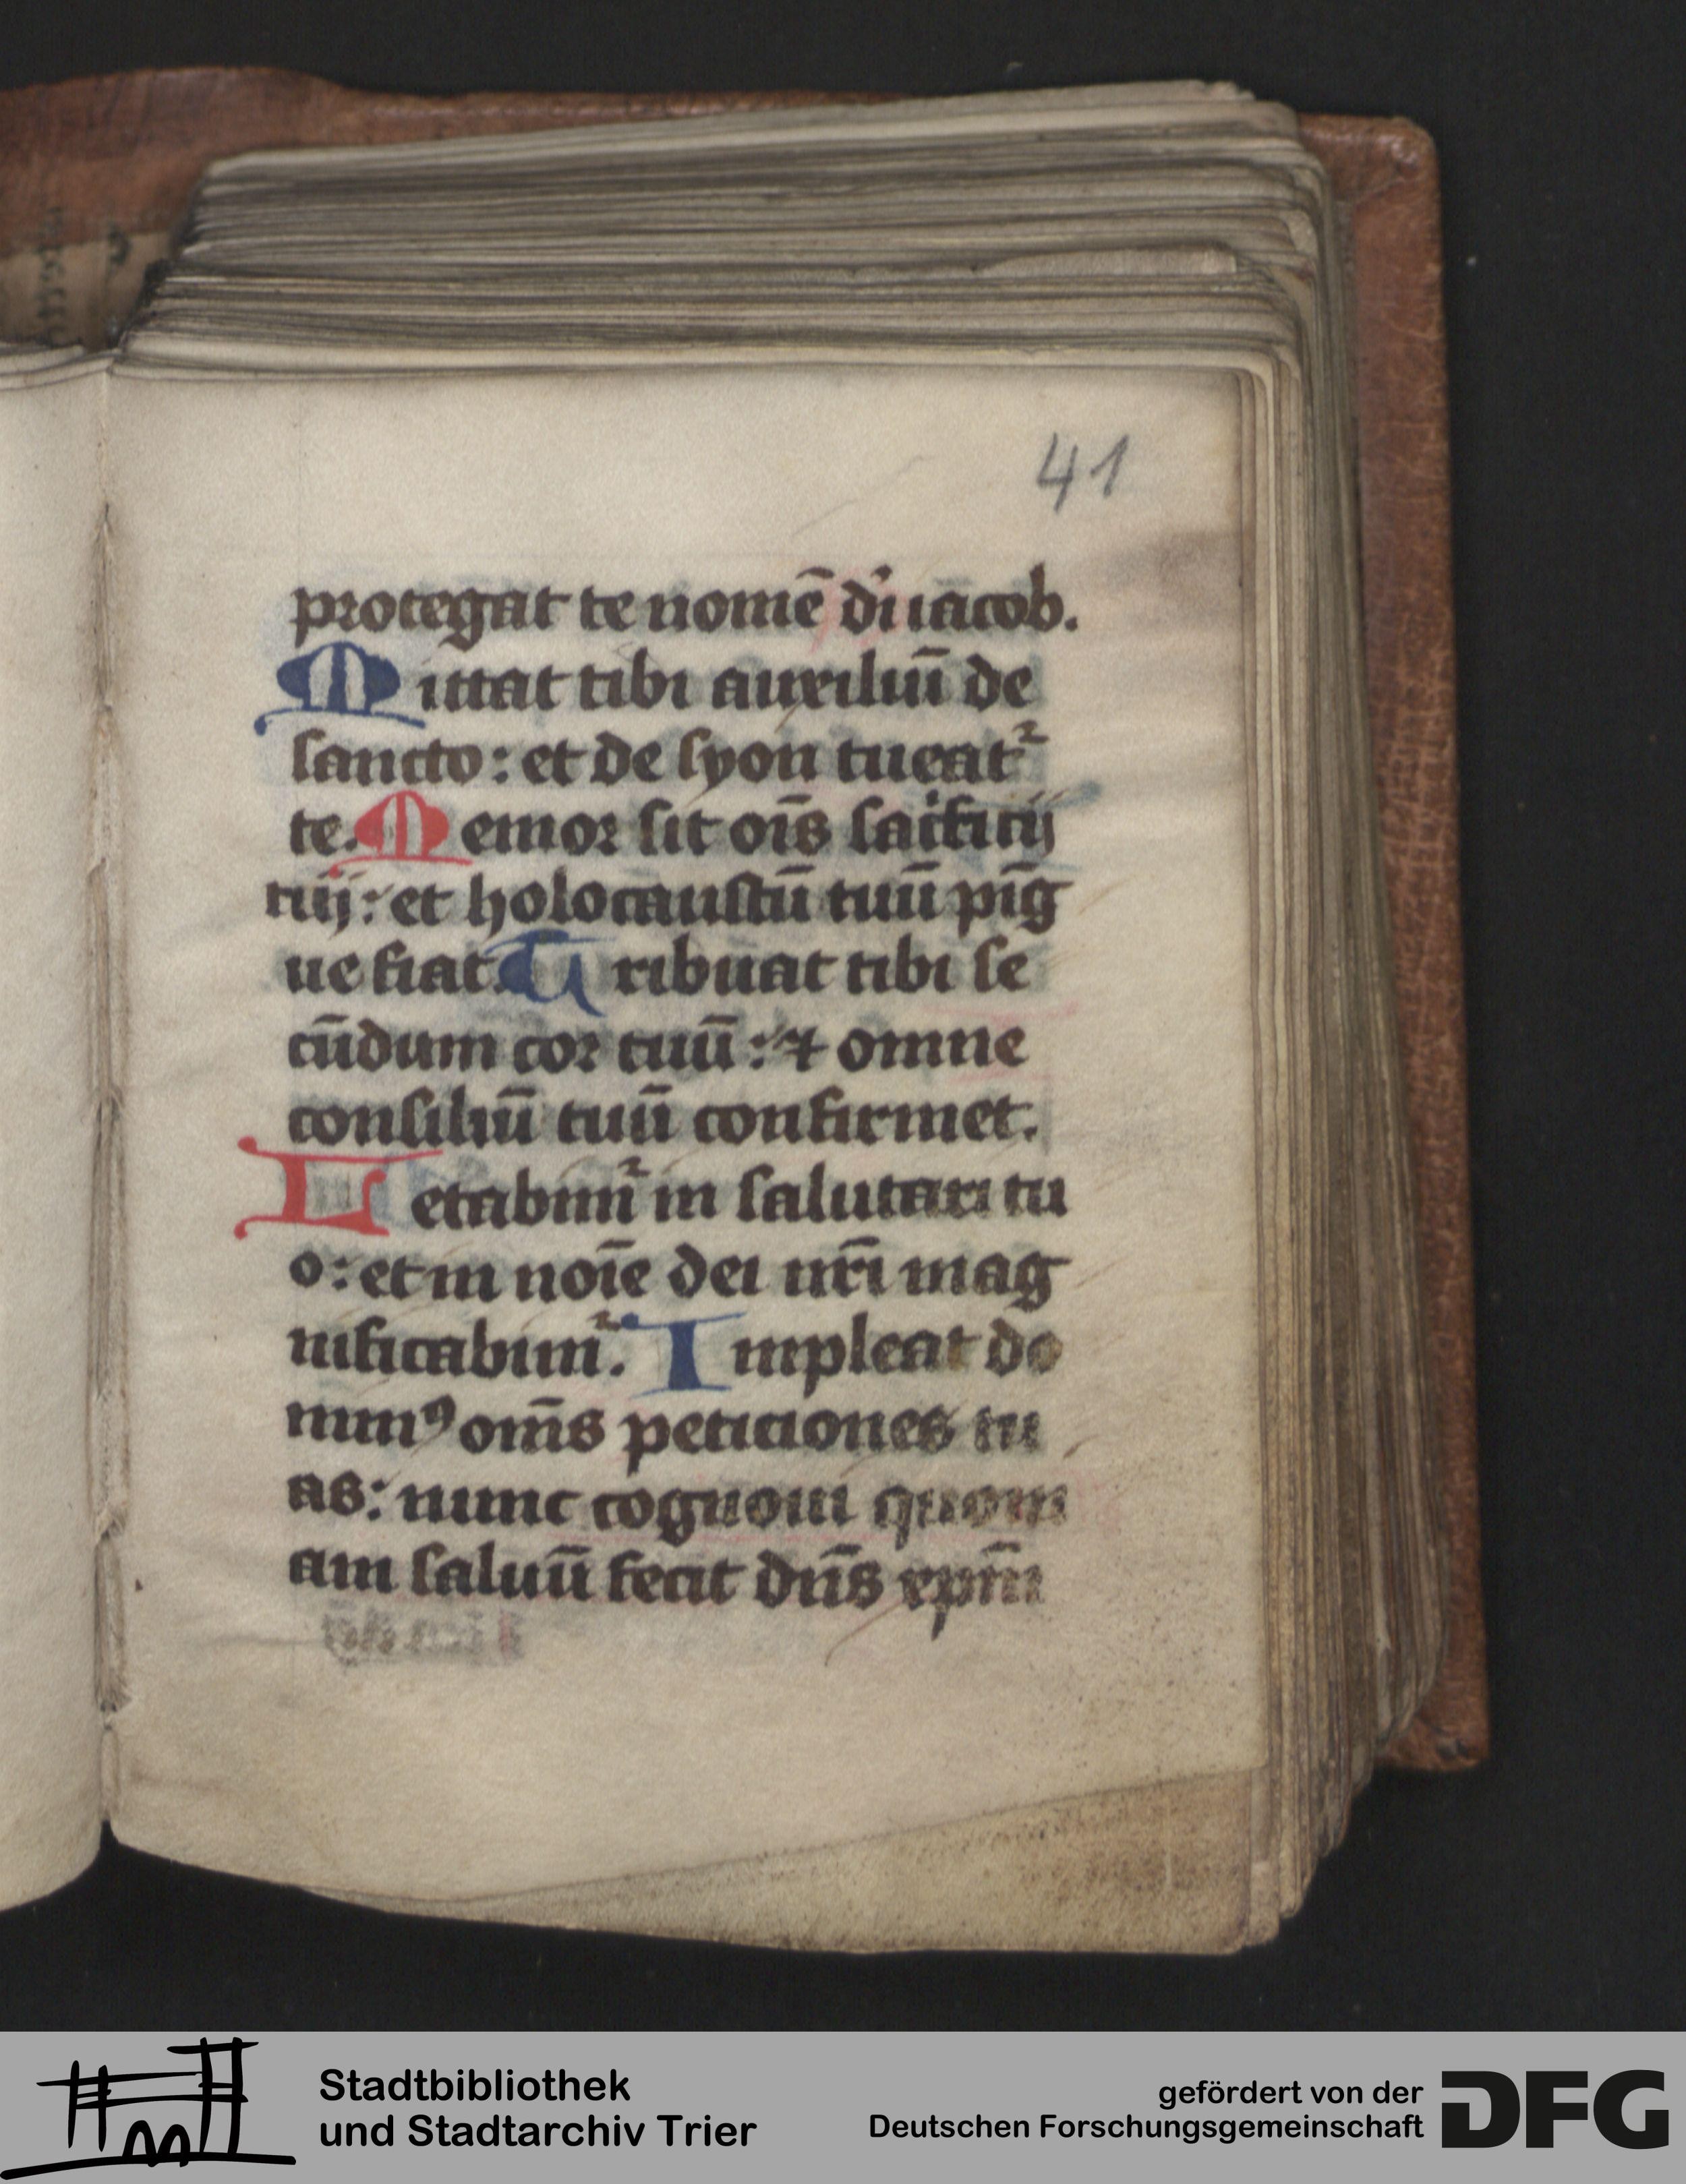 41
protegat te nomē dı̄ iacob.
Mittat tibi auxiliū de
sancto : et de syon tueatr̉
te. Memor sit oı̄s sacͥficij
tuij : et holocaustū tuū pı̄g
ue fiat. Tribuat tibi se
cūdum cor tuū : ⁊ omne
consiliū tuū confirmet.
Letabimr̉ in salutari tu
o : et in noı̄e dei nr̄i mag
nificabimr̉. Impleat do
minꝰ om̄s peticiones tu
as : nunc cognoui quoni
am saluū fecit dn̄s xpm̄
Stadtbibliothek
und Stadtarchiv Trier
gefördert von der
Deutschen Forschungsgemeinschaft
DFG